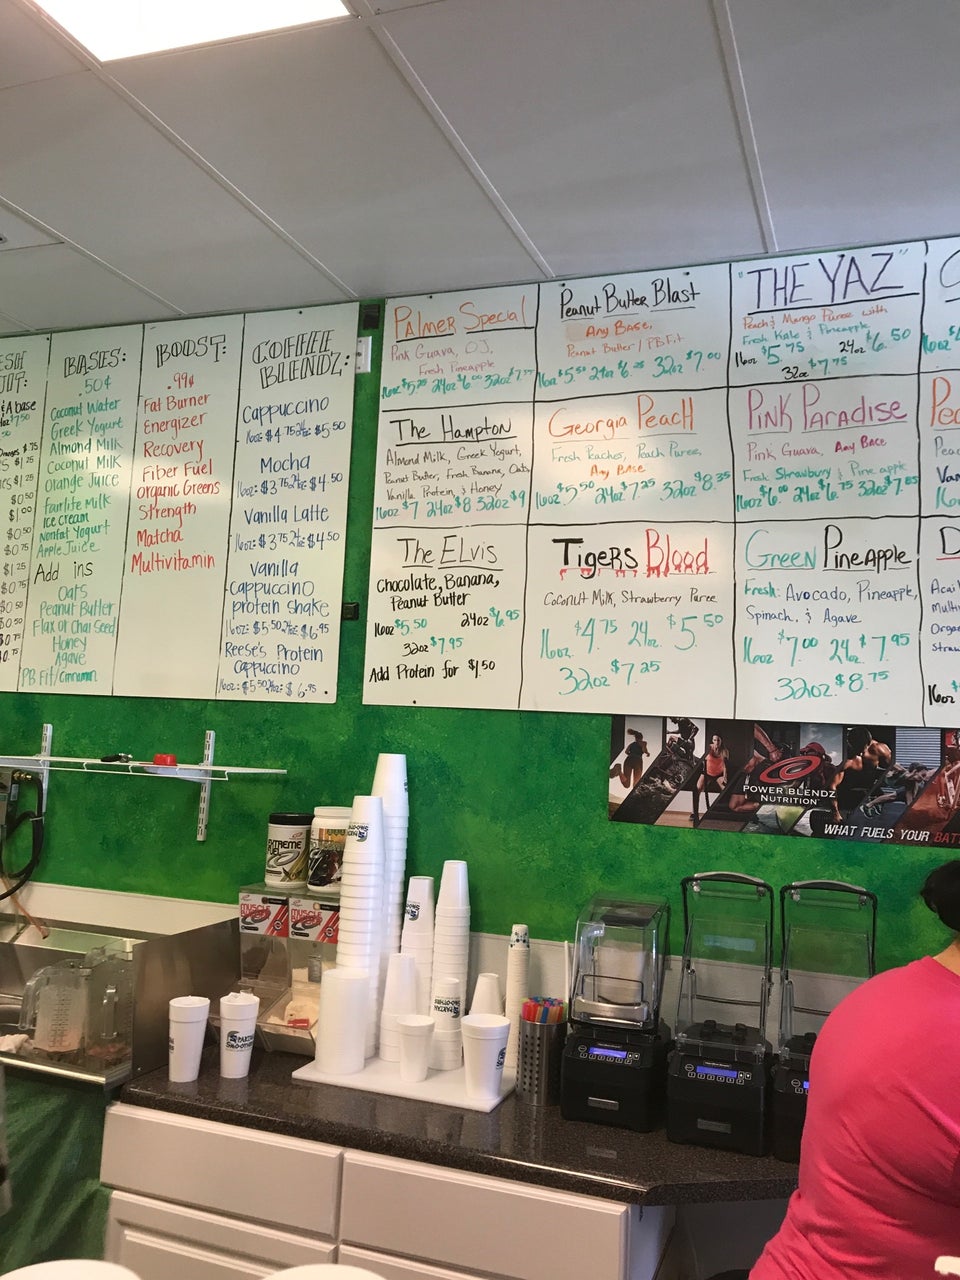 & A base
BASES:
.50¢
Coconut Water
Greek Yogurt
Almond Milk
Coconut Milk
Orange Juice
Fairlife Milk
Ice cream
Nonfat Yogurt
Apple Juice
Add ins
Oats
Peanut Butter
Flax or Chai Seed
Honey
Agave
PB Fit/Cinnamon
BOOST:
.99¢
Fat Burner
Energizer
Recovery
Fiber Fuel
Organic Greens
Strength
Matcha
Multivitamin
COFFEE
BLENDZ:
Cappuccino
16oz: $4.75 24oz $5.50
Mocha
16oz: $3.75 24oz $4.50
Vanilla Latte
16oz: $3.75 24oz $4.50
Vanilla
Cappuccino
protein shake
16oz: $5.50 24oz: $6.95
Reese's Protein
Cappuccino
16oz: $5.50 24oz: $6.95
Palmer Special
Pink Guava, OJ,
Fresh Pineapple
16oz $5.25 24oz $6.00 32oz
Peanut Butter Blast
Any Base,
Peanut Butter / PB Fit
16oz $5.50 24oz $6.25 32oz $7.00
"THE YAZ"
Peach & Mango Puree with
Fresh Kale & Pineapple
16oz $5.75 24oz $6.50
32oz $7.75
The Hampton
Almond Milk, Greek Yogurt,
Peanut Butter, Fresh Banana, Oats
Vanilla Protein & Honey
16oz $7 24oz $8 32oz $9
Georgia Peach
Fresh Peaches, Peach Puree,
Any Base
16oz $5.50 24oz $7.25 32oz $8.35
Pink Paradise
Pink Guava, Any Base
Fresh Strawbury & Pine apple
16oz $6.00 24oz $6.75 32oz
The Elvis
Chocolate, Banana,
Peanut Butter
16oz $5.50 24oz $6.95
32oz $7.95
Add Protein for $1.50
Tigers Blood
Coconut Milk, Strawberry Puree
16oz $4.75 24oz $5.50
32oz $7.25
Green Pineapple
Fresh: Avocado, Pineapple,
Spinach, & Agave
16oz $7.00 24oz $7.95
32oz $8.75
POWER BLENDZ
NUTRITION
WHAT FUELS YOUR
EXTREME
FUEL
MUSCLE
MUSCLE
SPARTAN
SMOOTHIES